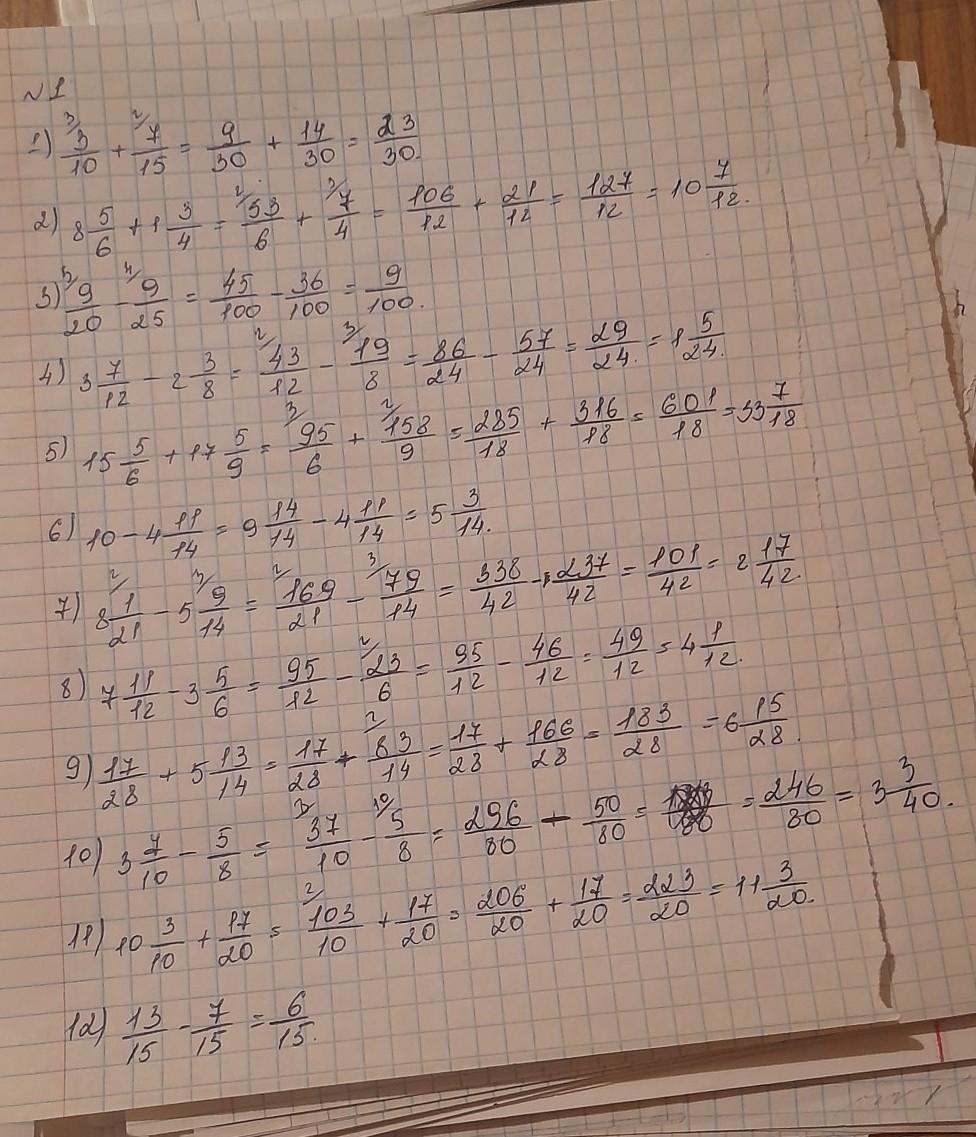 №1
1) 3/10 + 7/15 = 9/30 + 14/30 = 23/30.
2) 8 5/6 + 1 3/4 = 53/6 + 7/4 = 106/12 + 21/12 = 127/12 = 10 7/12.
3) 9/20 - 9/25 = 45/100 - 36/100 = 9/100.
4) 3 7/12 - 2 3/8 = 43/12 - 19/8 = 86/24 - 57/24 = 29/24. = 1 5/24.
5) 15 5/6 + 17 5/9 = 95/6 + 158/9 = 285/18 + 316/18 = 601/18 = 33 7/18
6) 10 - 4 11/14 = 9 14/14 - 4 11/14 = 5 3/14.
7) 8 1/21 - 5 9/14 = 169/21 - 79/14 = 338/42 - 237/42 = 101/42 = 2 17/42.
8) 7 11/12 - 3 5/6 = 95/12 - 23/6 = 95/12 - 46/12 = 49/12 = 4 1/12.
9) 17/28 + 5 13/14 = 17/28 + 83/14 = 17/28 + 166/28 = 183/28 = 6 15/28.
10) 3 7/10 - 5/8 = 37/10 - 5/8 = 296/80 - 50/80 = = 246/80 = 3 3/40.
11) 10 3/10 + 17/20 = 103/10 + 17/20 = 206/20 + 17/20 = 223/20 = 11 3/20.
12) 13/15 - 7/15 = 6/15.